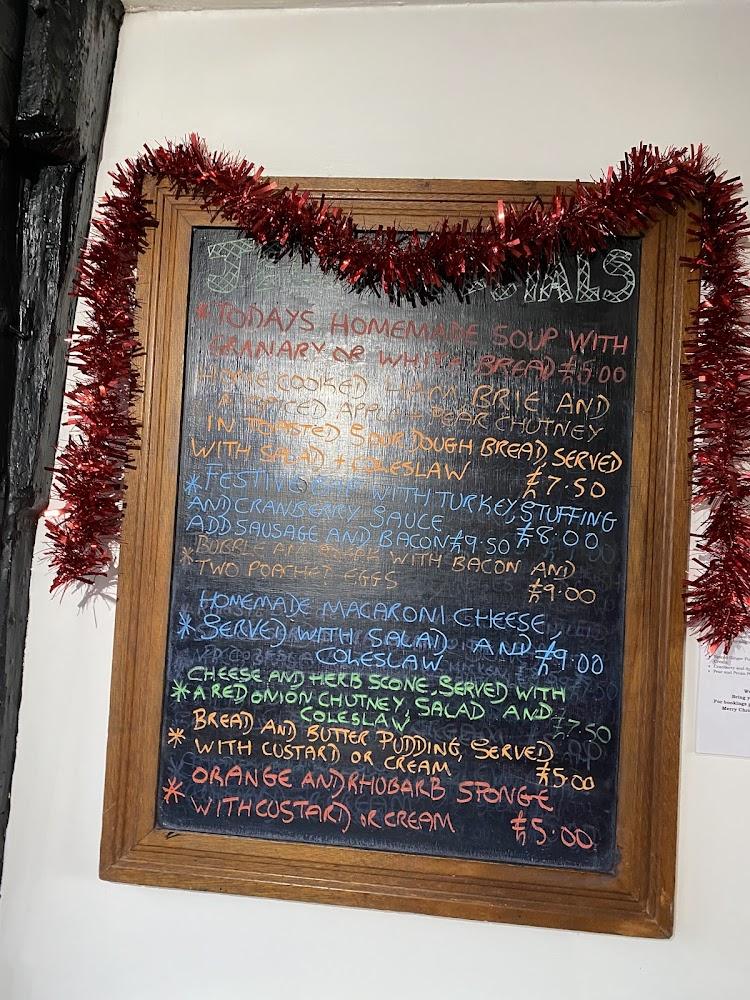 *TODAYS HOMEMADE SOUP WITH
GRANARY OR WHITE BREAD £5.00
HOME COOKED HAM, BRIE AND
SPICED APPLE + PEAR CHUTNEY
IN TOASTED SOUR DOUGH BREAD, SERVED
WITH SALAD + COLESLAW £7.50
*FESTIVE WITH TURKEY, STUFFING
AND CRANBERRY SAUCE £8.00
ADD SAUSAGE AND BACON £9.50
*BUBBLE AND SQUEAK WITH BACON AND
TWO POACHET EGGS £9.00
HOMEMADE MACARONI CHEESE,
*SERVED WITH SALAD AND £9.00
COLESLAW
CHEESE AND HERB SCONE, SERVED WITH
*A RED ONION CHUTNEY, SALAD AND
COLESLAW £7.50
BREAD AND BUTTER PUDDING, SERVED
*WITH CUSTARD OR CREAM £5.00
ORANGE AND RHUBARB SPONGE
*WITH CUSTARD OR CREAM £5.00